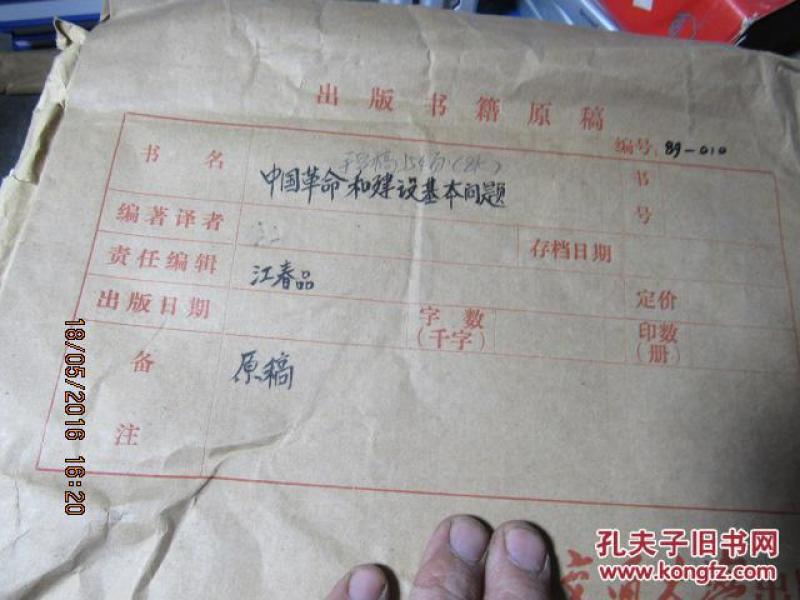 出版书籍原稿
编号: 89-010
书名
手写稿154页(8K)
中国革命和建设基本问题
书号
编著译者
存档日期
责任编辑
江春品
定价
出版日期
字数(千字)
印数(册)
备注
原稿
18/05/2016 16:20
孔夫子旧书网
www.kongfz.com